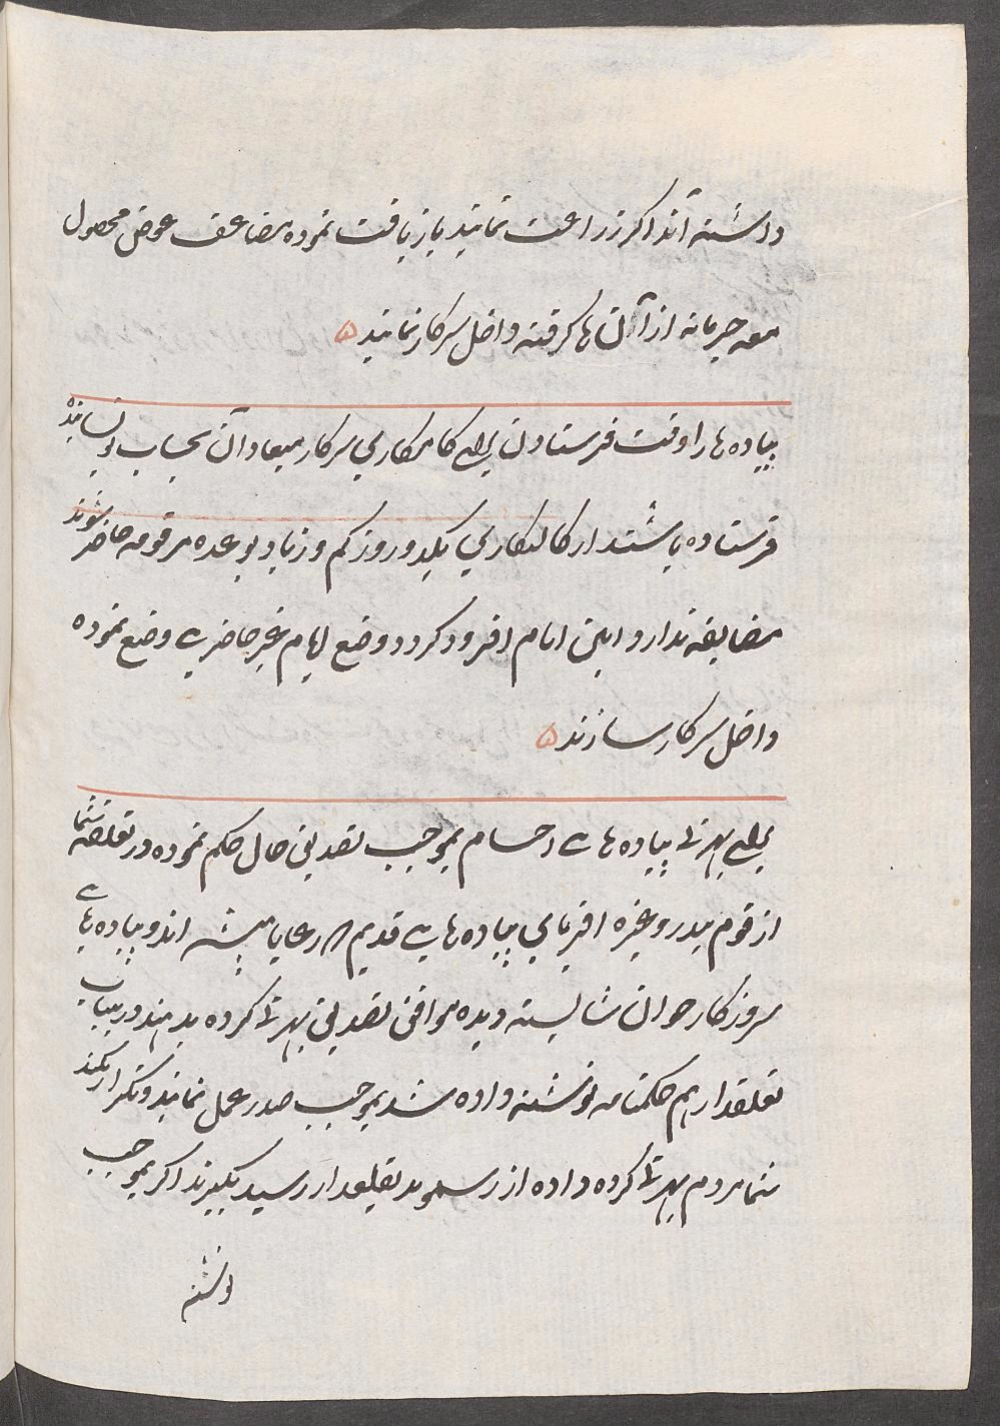 داشته اند اکر زراعت نمایند بازیافت نموده مضاعف عوض محصول
معه جرمانه از آن ها کرفته داخل سرکار نمایند ۵
پیاده ها را وقت فرستادن برای کامکاری سرکار میعاد آن بحساب
فرستاده باشند از کامکاری یکدو روز کم و زیاد بوعده مرقومه حاضر شوند
مضایقه ندارد و ایام افزود کردد وضع ایام غیر حاضری وضع نموده
داخل سرکار سازند ۵
برای بهرتی پیاده های احسام بموجب تصدیق حال حکم نموده در تعلقه شما
از قوم بیدر وغیره اقربای پیاده های قدیم رعایا پیشه اند و پیاده های
سروزکار جوان شایسته دیده موافق تصدیق بهرتی کرده بدهند در
تعلقدار هم حکمنامه نوشته داده شد بموجب صدر عمل نمایند و تکرار نکند
شما مردم بهرتی کرده داده از تعلقدار رسید بکیرند اکر بموجب
نوشته